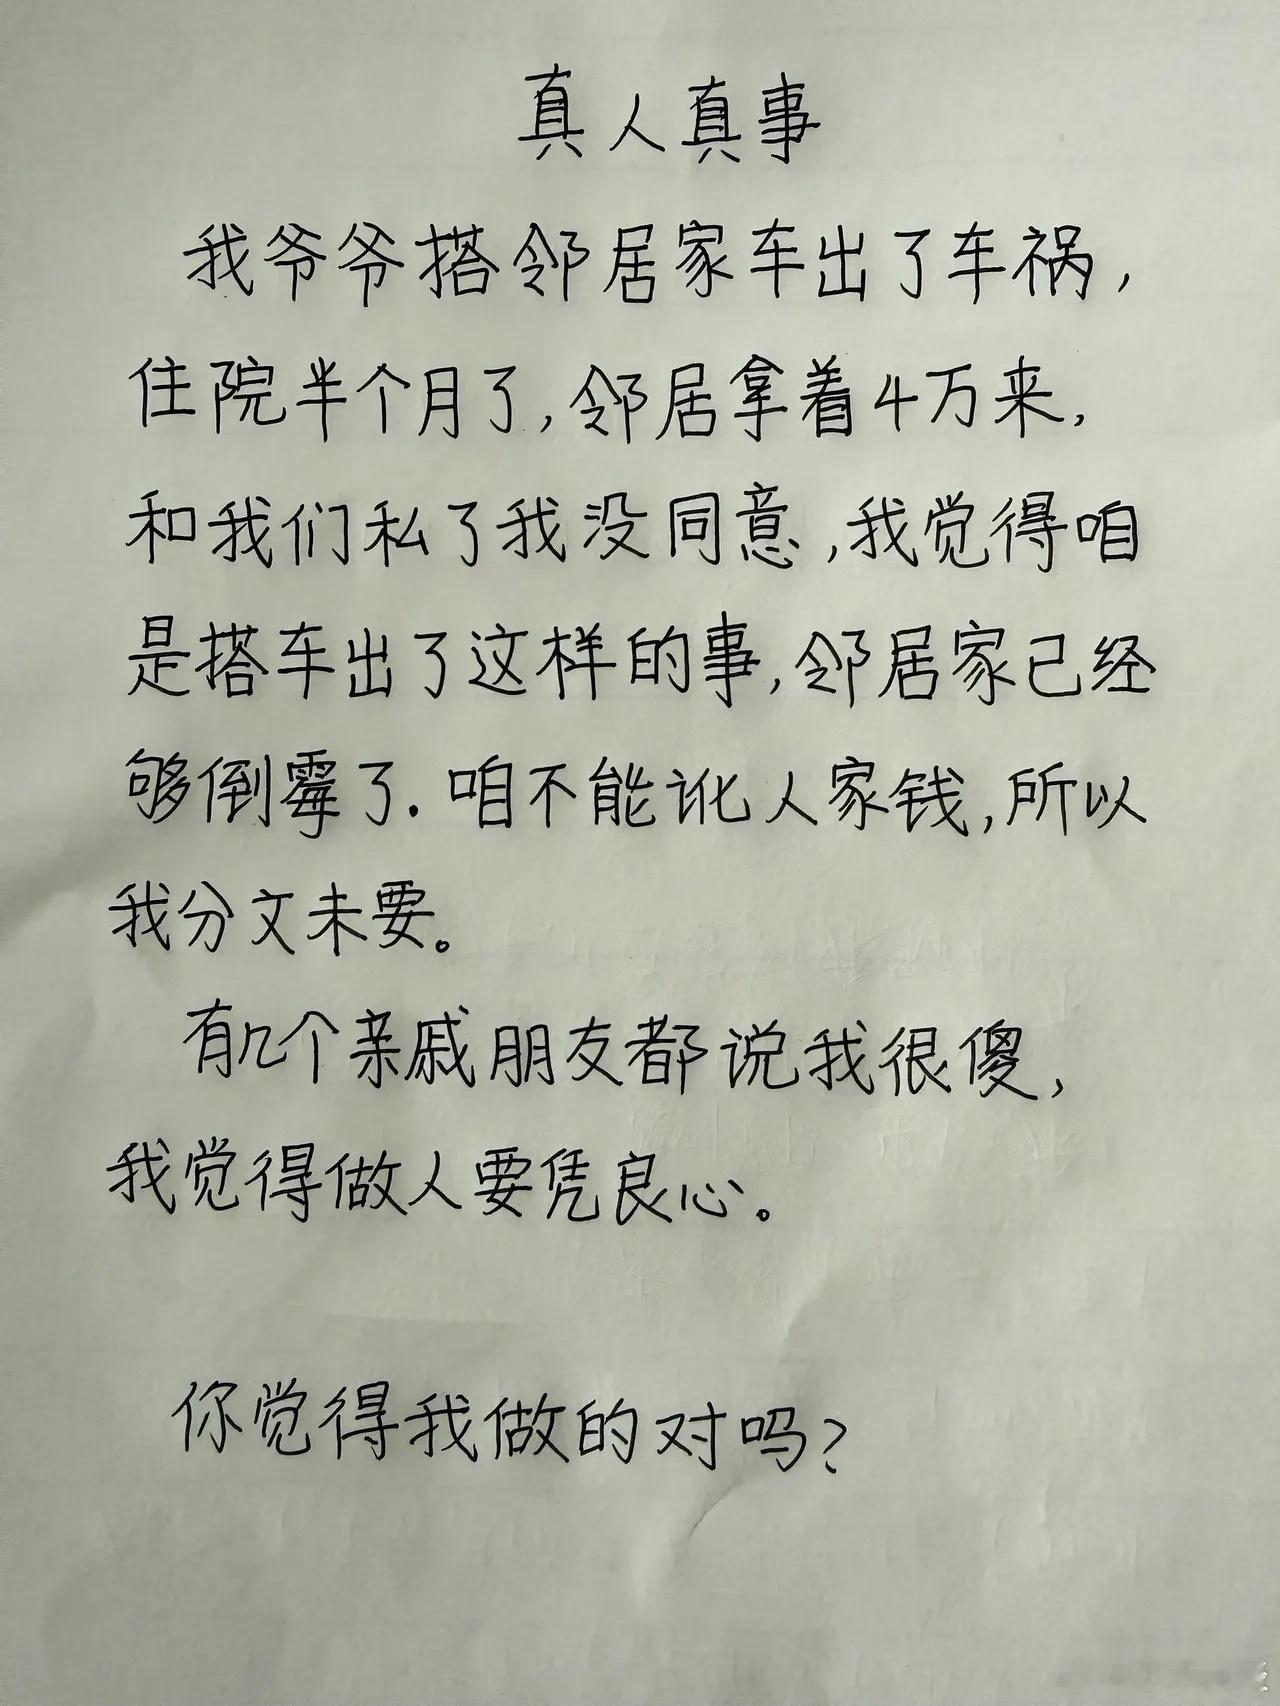 真人真事
我爷爷搭邻居家车出了车祸，
住院半个月了，邻居拿着4万来，
和我们私了我没同意，我觉得咱
是搭车出了这样的事，邻居家已经
够倒霉了．咱不能讹人家钱，所以
我分文未要。
有几个亲戚朋友都说我很傻，
我觉得做人要凭良心。
你觉得我做的对吗？